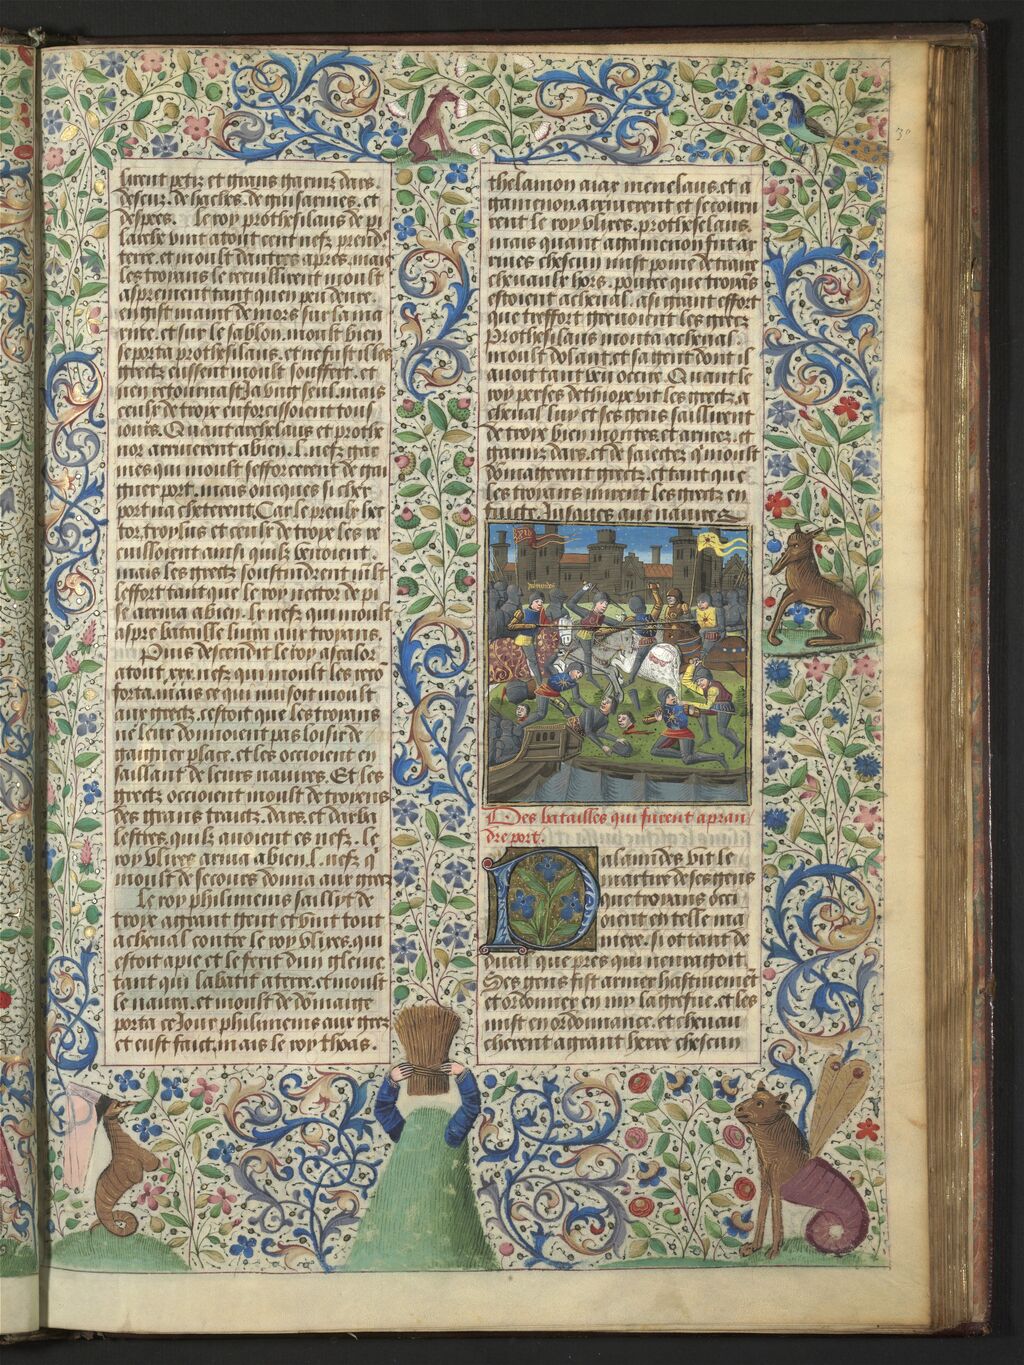 lirent petiz et grans garniz dars.
descuz. de haches. de guisarmes. et
despees. Le roy prothesilaus de pi
larche vint atout cent nefz prendr
terre. et moult dautres apres. mais
les troyans le recuillirent moult
asprement tant quen peu deure.
en gist autant de mors sur la ma
rine. et sur le sablon. moult bien
se porta prothesilaus. et ne fust il les
grecz eussent moult souffert. et
nen retournast ja vng seul. mais
ceulx de troye enforcissoient tous
iours. Quant archelaus et prothe
nor arriuerent a bien .l. nefz gar
nies qui moult sefforcerent de gai
gnier port. mais oncques si chier
port na cheterent. Car le preulx hec
tor. troylus et ceulx de troye les re
cuilloient ainsi quilz venoient.
mais les grecz soustindrent mlt
leffort tant que le roy nector de pi
le arriua a bien .l. nefz qui moult
aspre bataille liura aux troyans.
Puis descendit le roy ascalor
atout .xxx. nefz qui moult les recō
forta. mais ce qui nuisoit moult
aux grecz. cestoit que les troyans
ne leur donnoient pas loisir de
gaignier place. et les occioient en
saillant de leurs nauires. Et les
grecz occioient moult de troyens
des grans traictz. dars. et darba
lestres. quilz auoient es nefz. Le
roy vlixes arriua a bien .l. nefz q
moult de secours donna aux grecz
Le roy philimenis saillyt de
troye a grant gent et vint tout
acheual contre le roy vlixes. qui
estoit a pie et le ferit dun gleiue
tant quil labatit a terre. et moult
le naura. et moult de dōmaige
porta ce iour philimenis aux grecz
et eust faict. mais le roy thoas.
thelamon aiax menelaus. et a
gamenon. arriuerent et secouru
rent le roy vlixes. prothesilaus.
mais quant agamenon fut ar
riues chescun mist poine de traire
cheuaulx hors. pource que troyās
estoient acheual. a si grant effort
que treffort greuoient les grecz
Prothesilaus monta acheual.
moult dolant. et sa gent dont il
auoit tant veu occire. Quant le
roy perses dethiope vit les grecz. a
cheual luy et ses gens saillirent
de troye bien montes. et armez. et
garniz dars. et de saiectes q̄ moult
dōmagerent grecz. et tant que
les troyans mirent les grecz en
fuitte. Jusques aux nauires
Des batailles qui furent a pran
dre port.
Palamides vit le
martire de ses gens
que troyans occi
oient en telle ma
niere. Si ot tant de
dueil que pres qui nenragoit.
Ses gens fist armer hastiuemēt
et ordonner en my la greue. et les
mist en ordonnance. et cheuau
cherent a grant herre chescun